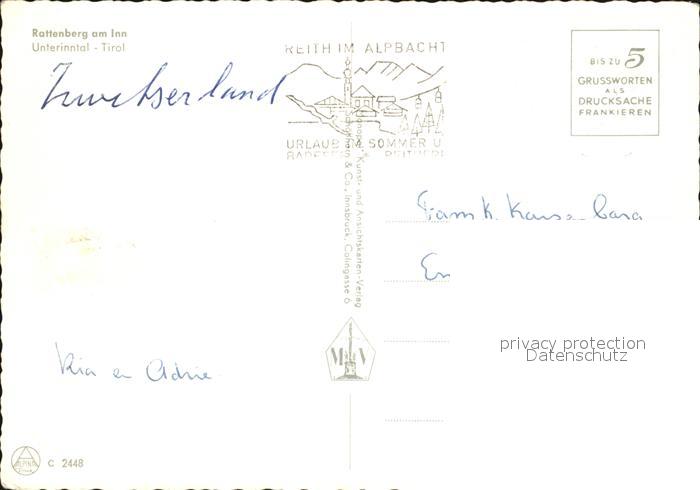 Rattenberg am Inn
Unterinntal - Tirol
Zwitserland
REITH IM ALPBACHT
URLAUB IM SOMMER U
BIS ZU 5
GRUSSWORTEN
ALS
DRUCKSACHE
FRANKIEREN
Kunst- und Ansichtskarten-Verlag
& Co., Innsbruck, Colingasse 6
Fam K.
En
privacy protection
Datenschutz
Ria en Adrie
M V
ALPINA
C 2448